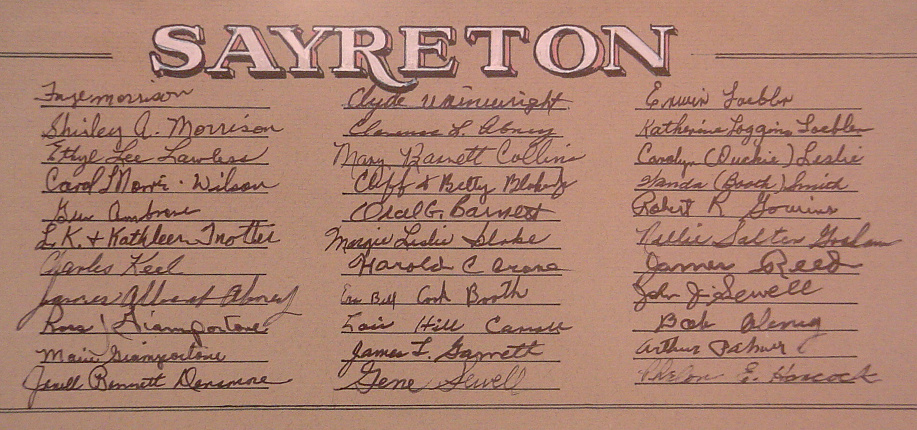 SAYRETON
Faye Morrison
Shirley A. Morrison
Ethyl Lee Lawless
Carol Morris - Wilson
Ambrose
L.K. + Kathleen Trotter
Charles Keel
James Albert Abney
Ross J Giamportone
Marie Giamportone
Jewell Bennett Densmore
Clyde Wainwright
Clarence L. Abney
Mary Barnett Collins
Cliff & Betty Blake Jr
Odal G. Barnett
Margie Leslie Blake
Harold C Crane
Eva Bell Cook Booth
Lois Hill
James L. Garrett
Gene Sewell
Erwin Loebler
Katherine Loggins Loebler
Carolyn (Duckie) Leslie
Wanda (Booth) Smith
Robert R
Nellie Salter
James Reed
John J. Sewell
Bob
Arthur Palmer
E. Hancock